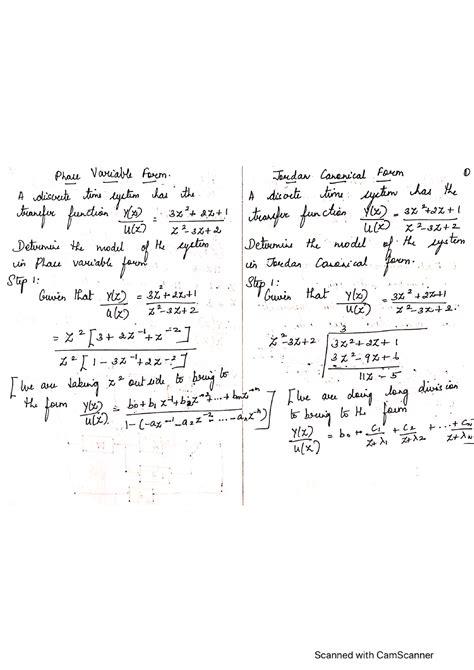 Phase Variable Form.
A discrete time system has the
transfer function Y(z)/U(z) = 3z²+2z+1 / z²-3z+2
Determine the model of the system
in Phase variable form.
Step 1:
Given that Y(z)/U(z) = 3z²+2z+1 / z²-3z+2
= z²[3+2z⁻¹+z⁻²] / z²[1-3z⁻¹+2z⁻²]
[we are taking z² outside to bring to
the form Y(z)/U(z) = b₀+b₁z⁻¹+b₂z⁻²+...+bₙz⁻ⁿ / 1-(-a₁z⁻¹-a₂z⁻²-...-aₙz⁻ⁿ)]
Jordan Canonical Form
①
A discrete time system has the
transfer function Y(z)/U(z) = 3z²+2z+1 / z²-3z+2
Determine the model of the system
in Jordan Canonical form.
Step 1:
Given that Y(z)/U(z) = 3z²+2z+1 / z²-3z+2.
3
z²-3z+2 3z²+2z+1
3z²-9z+6
11z-5
[we are doing long division
to bring to the form
Y(z)/U(z) = b₀+ c₁/z+λ₁ + c₂/z+λ₂ +...+ cₙ/z+λₙ
Scanned with CamScanner